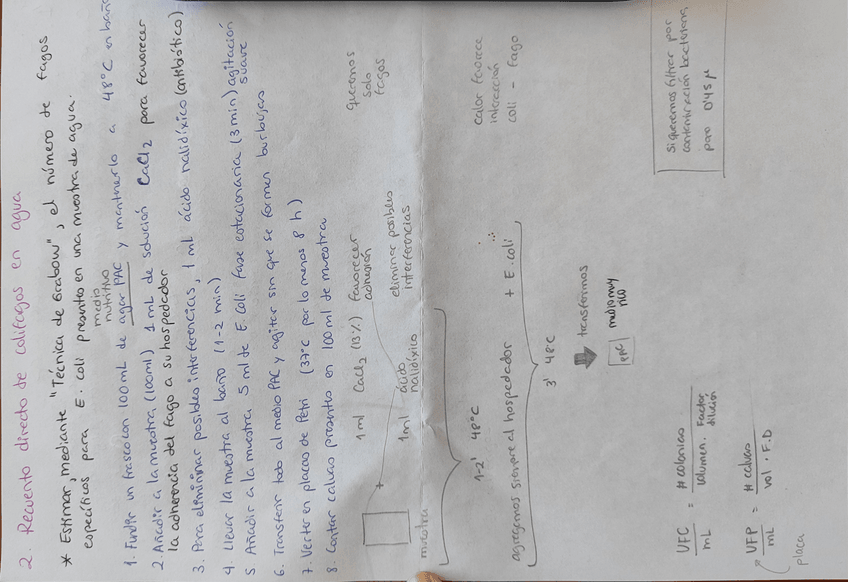 2. Recuento directo de colifagos en agua
* Estimar, mediante "Técnica de Grabow", el número de fagos
específicos para E. coli presentes en una muestra de agua.
medio
nutritivo
1. Fundir un frasco con 100 mL de agar PAC y mantenerlo a 48°C en baño
2 Añadir a la muestra (100ml) 1 mL de solución CaCl2 para favorecer
la adherencia del fago a su hospedador
3. Para elimininar posibles interferencias, 1 mL ácido nalidíxico (antibiótico)
4. Llevar la muestra al baño (1-2 min)
5 Añadir a la muestra 5 ml de E. Coli fase estacionaria (3 min) agitación
suave
6. Transferir todo al medio PAC y agitar sin que se formen burbujas
7. Verter en placas de Petri (37°C por lo menos 8 h)
8. Contar calvas presentes en 100 ml de muestra
muestra
+
1 ml CaCl2 (13%) favorecer
adhesión
1 ml ácido
nalidíxico
eliminar posibles
interferencias
queremos
solo
fagos
1-2' 48°C
agregamos siempre al hospedador + E. coli
calor favorece
interacción
coli - fago
3' 48°C
transferimos
PAC
medio muy
rico
UFC/mL = # colonias / volumen . Factor dilución
UFP/mL = # calvas / vol . F.D
placa
Si queremos filtrar por
contaminación bacteriana
poro 0'45 µ